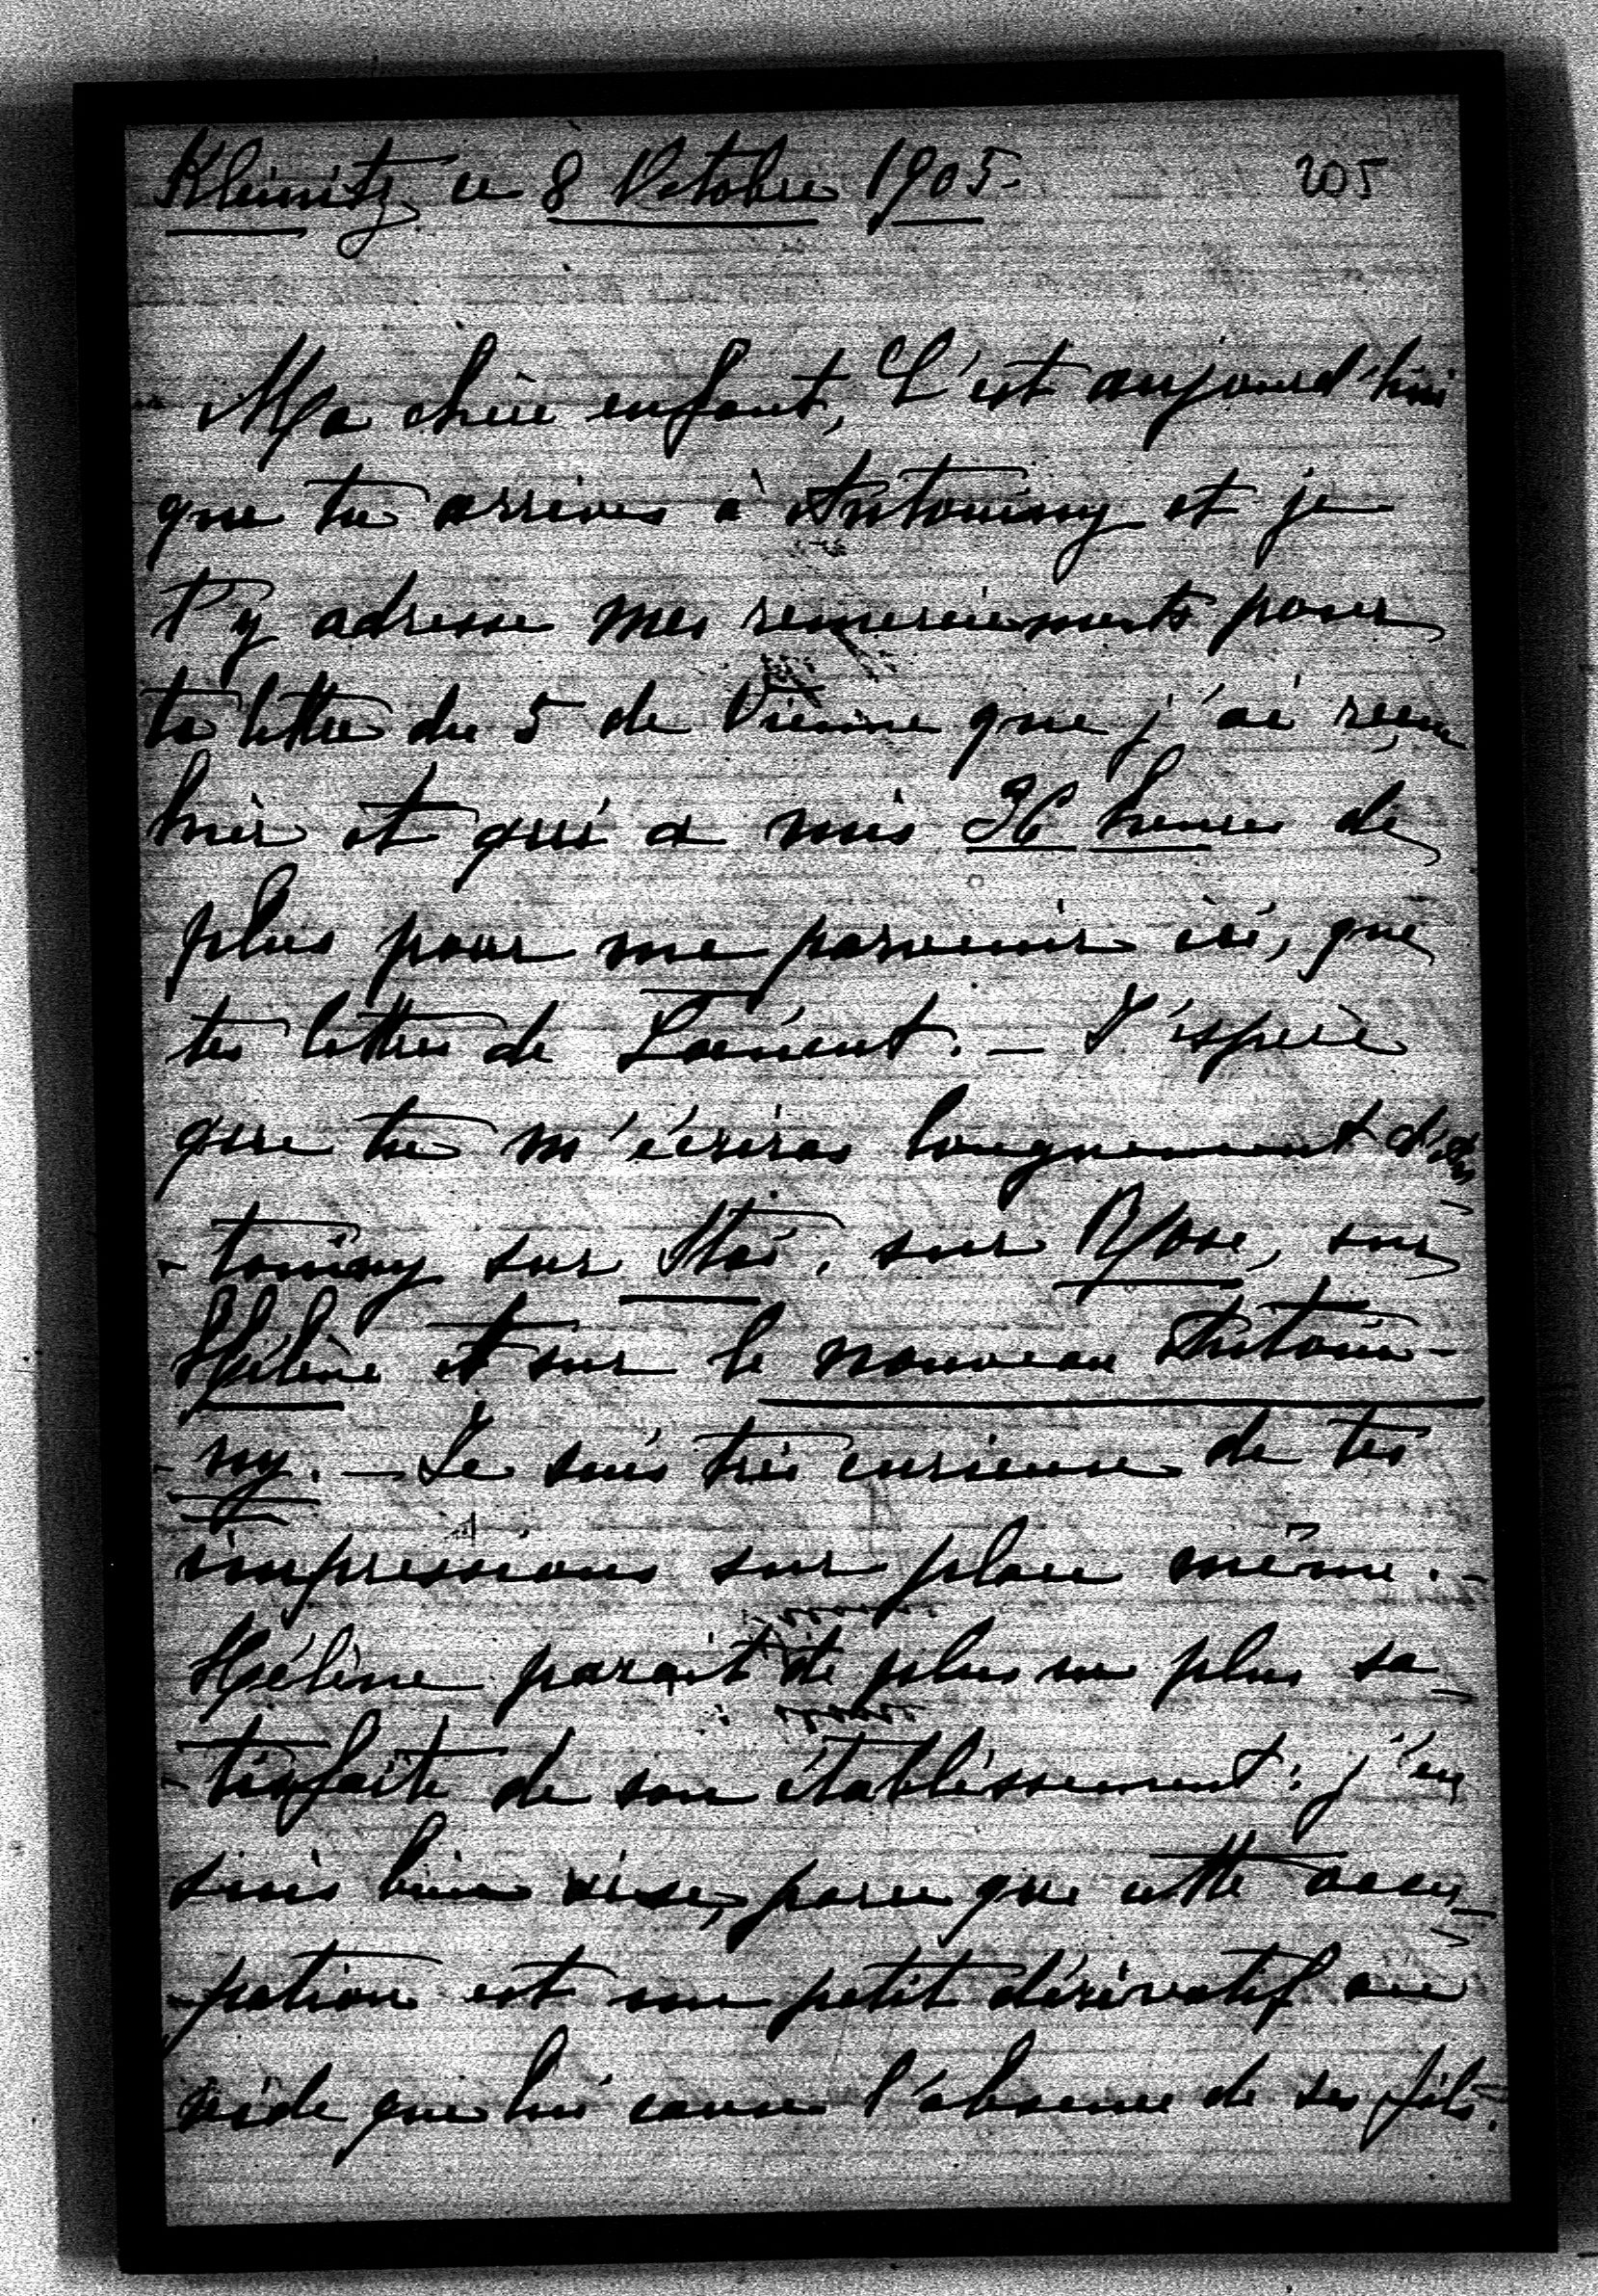 Kleinitz, ce 8 Octobre 1905. 205
Ma chère enfant, C'est aujourd'hui
que tu arrives à Antoniny et je
t'y adresse mes remerciements pour
ta lettre du 5 de Vienne que j'ai reçue
hier et qui a mis 36 heures de
plus pour me parvenir ici, que
tes lettres de Lancut. — J'espère
que tu m'écriras longuement d'An
-toniny sur Stas, sur Rose, sur
Hélène et sur le nouveau Antoni-
-ny. — Je suis très curieuse de tes
impressions sur place même. -
Hélène parait de plus en plus sa-
-tisfaite de son établissement: j'en
suis bien aise, parce que cette occu-
-pation est un petit dérivatif au
vide que lui cause l'absence de ses fils.